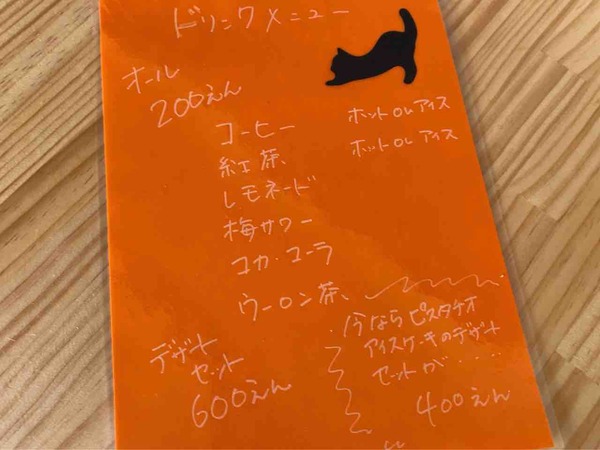 ドリンクメニュー
オール
200えん
コーヒー ホットorアイス
紅茶 ホットorアイス
レモネード
梅サワー
コカ・コーラ
ウーロン茶
デザート
セット
600えん
今ならピスタチオ
アイスケーキのデザート
セットが・・・・
400えん